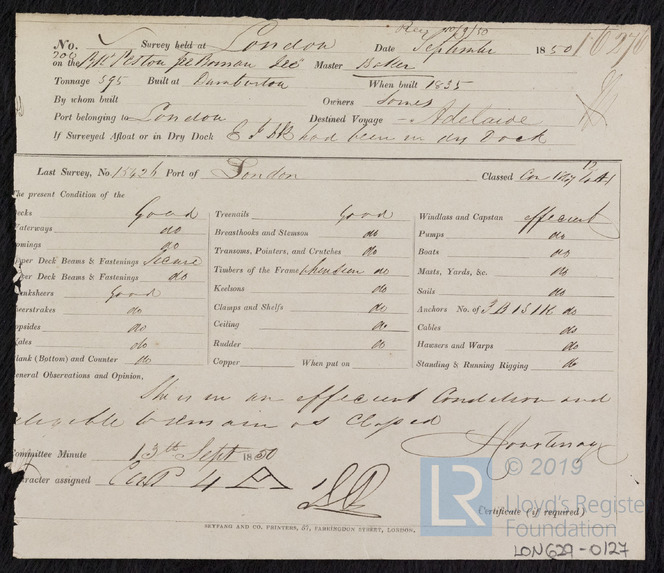 Rec 10/9/50
No. Survey held at London Date September 1850 16276
on the Bk Peston Master Baker
Tonnage 395 Built at Dumbarton When built 1835
By whom built Owners Somes
Port belonging to London Destined Voyage - Adelaide
If Surveyed Afloat or in Dry Dock had been in dry Dock
Last Survey, No. 15426 Port of London Classed 12
The present Condition of the
Decks Good Treenails Good Windlass and Capstan efficient
Waterways do Breasthooks and Stemson do Pumps do
Comings do Transoms, Pointers, and Crutches do Boats do
Upper Deck Beams & Fastenings Secure Timbers of the Frame when seen do Masts, Yards, &c. do
Lower Deck Beams & Fastenings do Keelsons do Sails do
Planksheers Good Clamps and Shelfs do Anchors No. of 3 B 1 S 1 K do
Sheerstrakes do Ceiling do Cables do
Topsides do Rudder do Hawsers and Warps do
Wales do Copper When put on Standing & Running Rigging do
Plank (Bottom) and Counter do
General Observations and Opinion,
She is in an efficient condition and
eligible to remain as Classed
Courtenay
Committee Minute 13th Sept 1850
Character assigned 4 A
Certificate (if required)
SEYFANG AND CO. PRINTERS, 57, FARRINGDON STREET, LONDON.
LR © 2019
Lloyd's Register
Foundation
LON629-0127